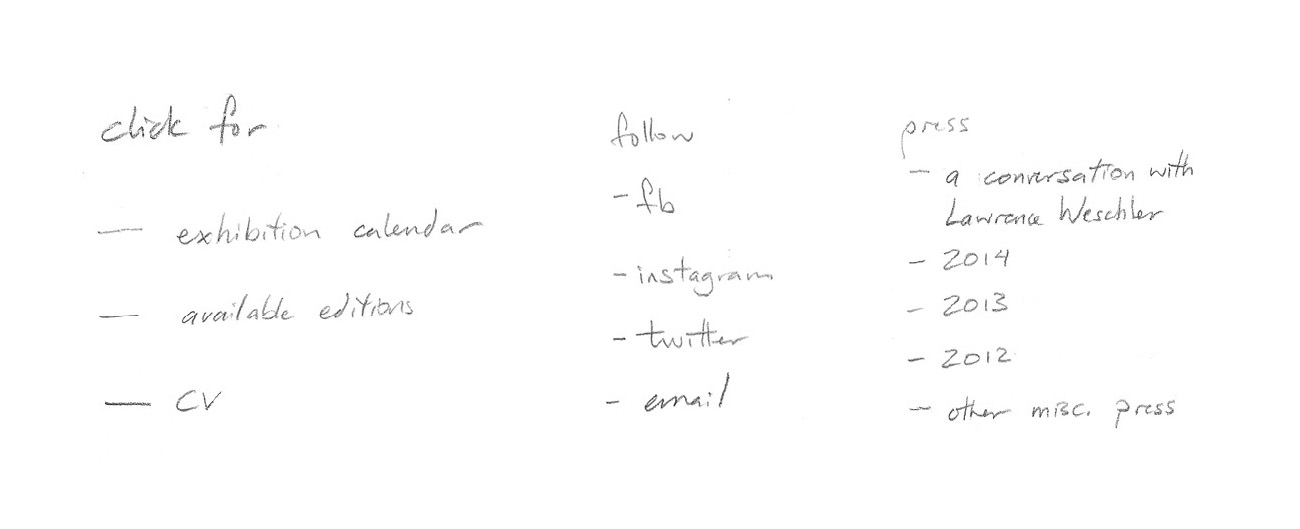 click for
— exhibition calendar
— available editions
— CV
follow
- fb
- instagram
- twitter
- email
press
- a conversation with
Lawrence Weschler
- 2014
- 2013
- 2012
- other misc. press